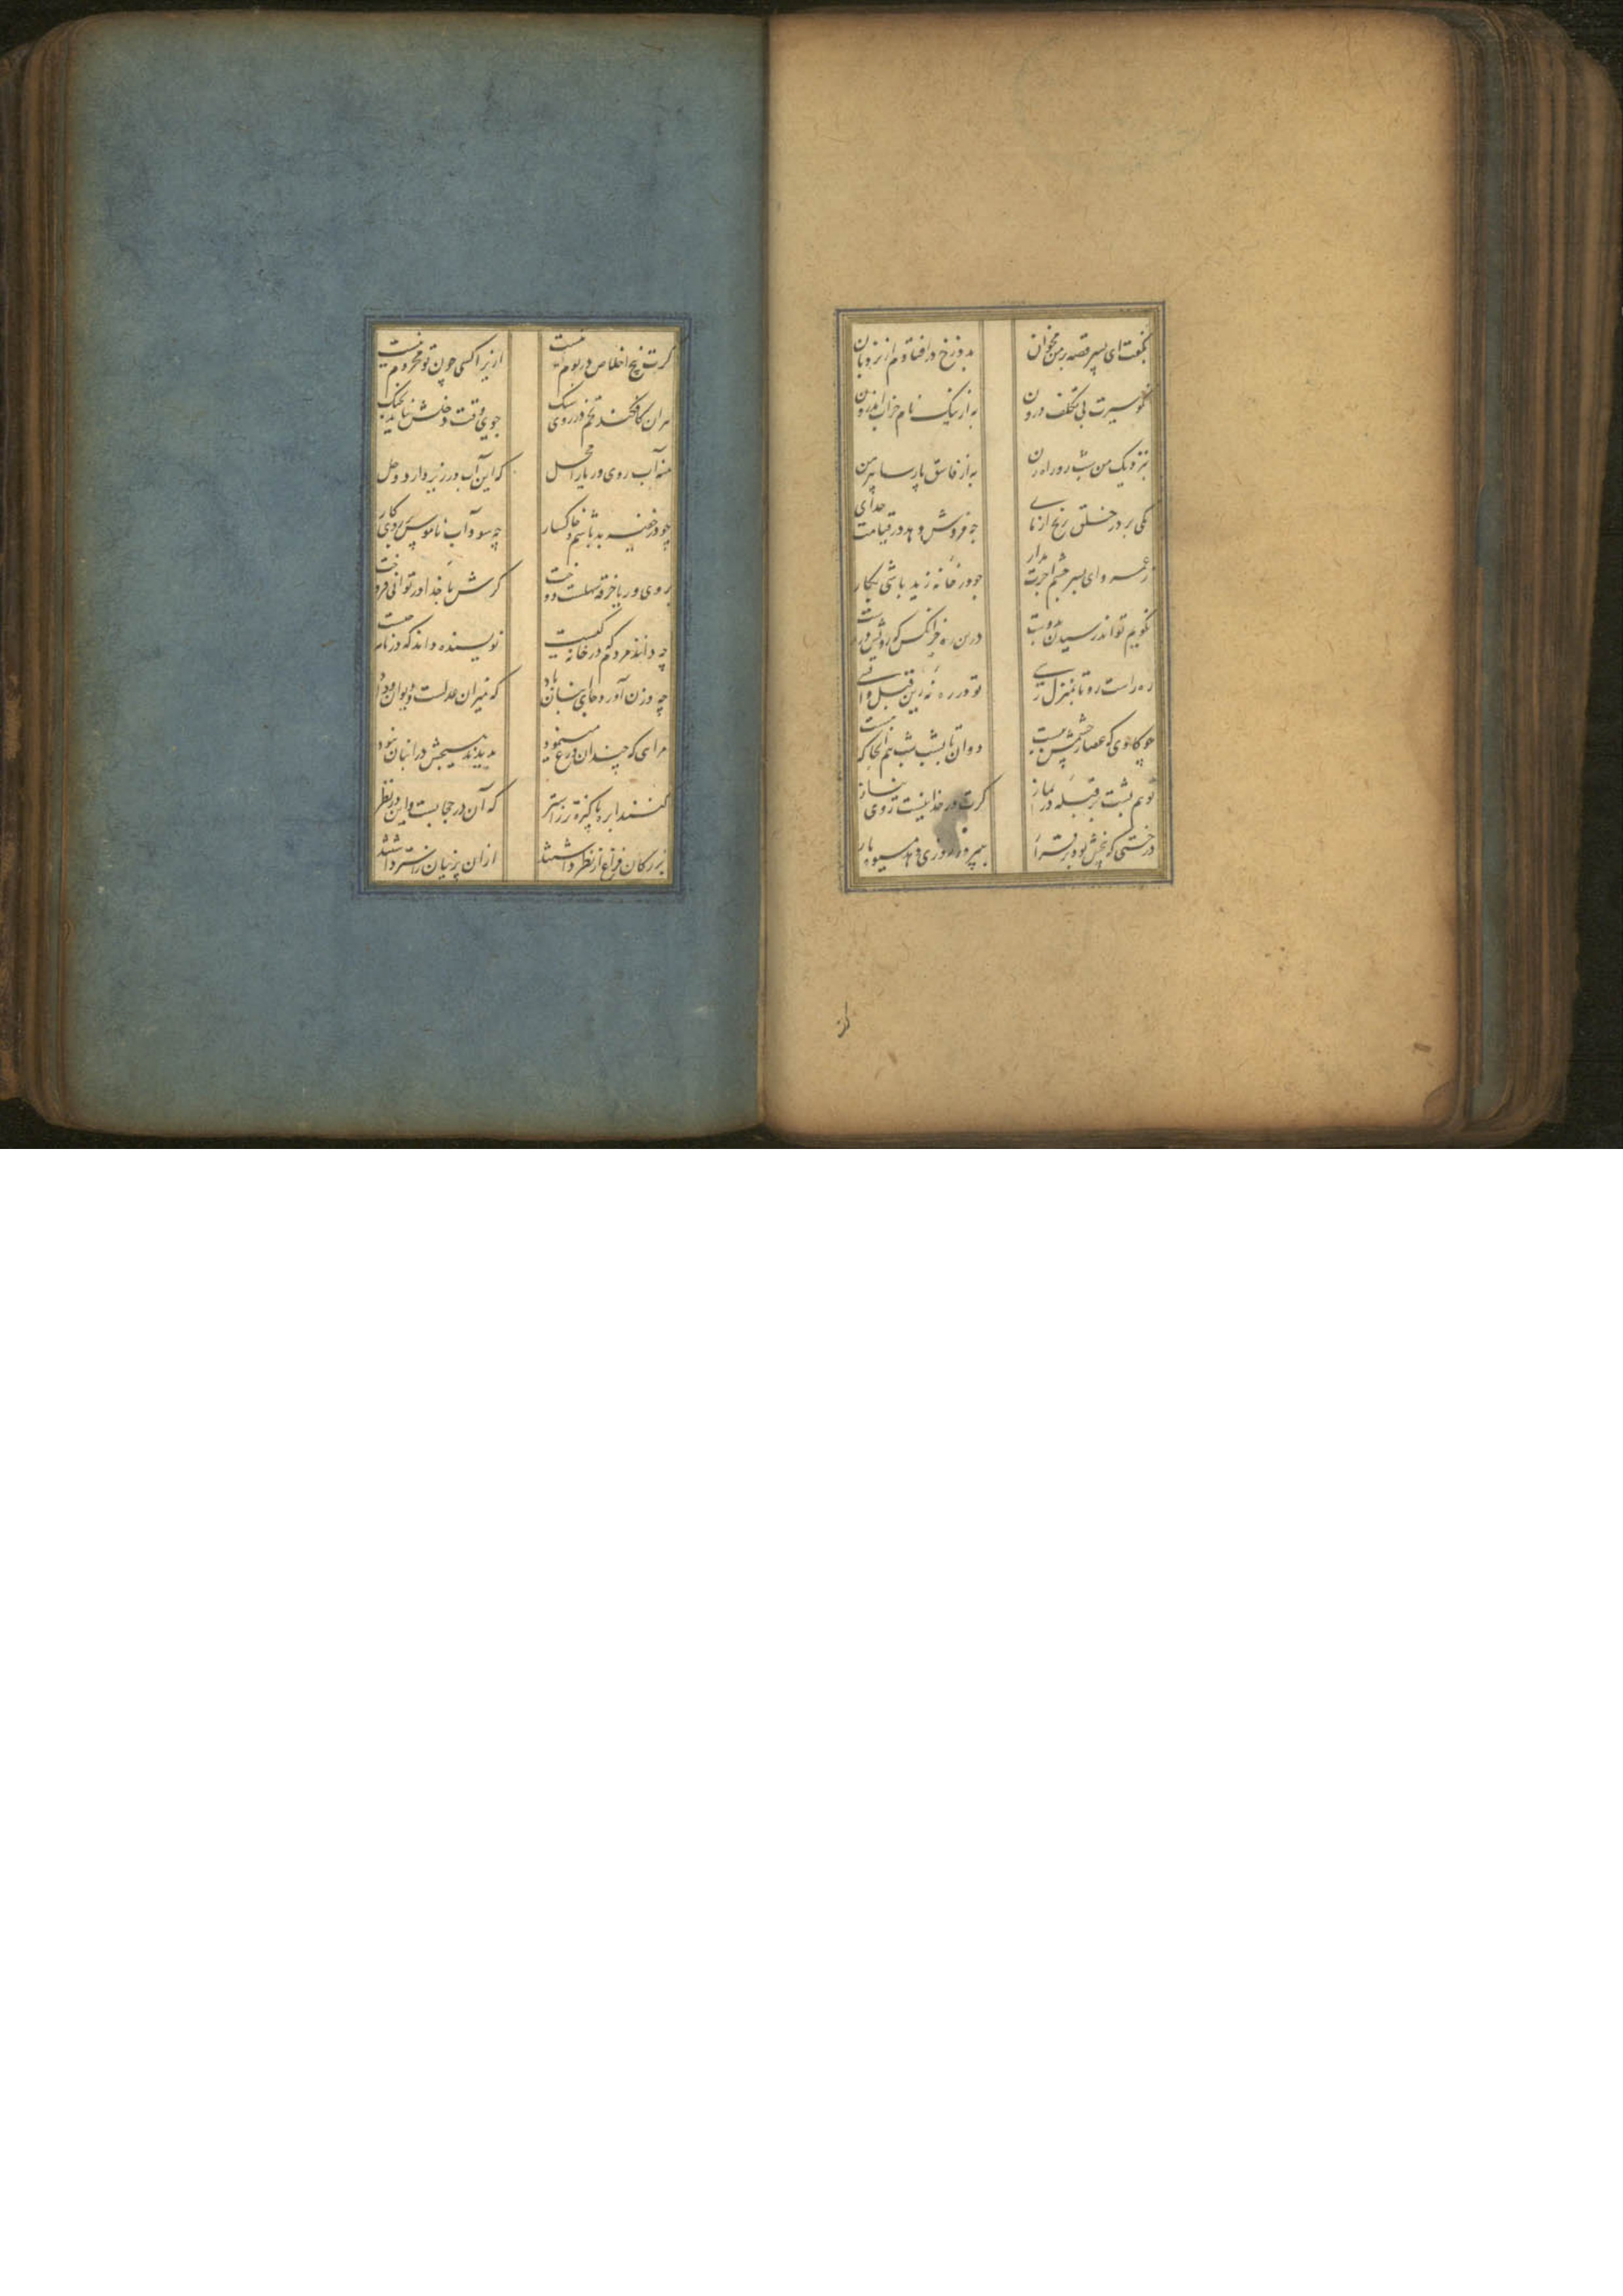 بگفت ای پسر قصه بر من مخوان بدوزخ در افتادم از نردبان
نکو سیرت بی تکلف درون به از نیک نام خراب اندرون
بنزدیک من شب رو راه زن به از فاسق پارسا پیرهن
یکی بر در خلق رنج آزمای چه مزدش دهد در قیامت خدای
ز عمرو ای پسر چشم اجرت مدار چو در خانه زید باشی بکار
نگویم تواند رسیدن بدوست درین ره جز آنکس که رویش دروست
ره راست رو تا بمنزل رسی تو در ره نه زین قبل واپسی
چو گاوی که عصار چشمش ببست دوان تا بشب شب هم آنجا که هست
تو هم پشت بر قبله در نماز گرت در خدا نیست روی نیاز
درختی که بیخش بود برقرار بپرور روزی دهد میوه بار
گرت بیخ اخلاص در بوم نیست ازین بر کسی چون تو محروم نیست
هر آن کافکند تخم در روی سنگ جوی وقت دخلش نیاید بچنگ
منه آب روی ریا را محل که این آب در زیر دارد وحل
چو در خفیه بد باشم و خاکسار چه سود آب ناموس بر روی کار
بروی و ریا خرقه سهلست دوخت گرش با خدا در توانی فروخت
چه دانند مردم که در خانه کیست نویسنده داند که در نامه چیست
چه وزن آورد جای انبان باد که میزان عدلست و دیوان داد
مرای که چندان ورع می نمود بدیدند هیچش در انبان نبود
کنند ابره پاکیزه تر ز آستر که آن در حجابست و این در نظر
بزرکان فراغ از نظر داشتند از آن پرنیان آستر داشتند